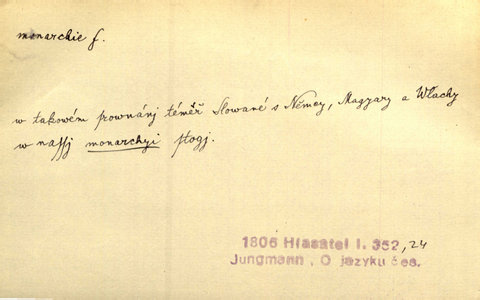 monarchie f.
w takowém prownánj téměř Slowané s Němcy, Magyary a Wlachy
w nassj monarchyi stogj.
1806 Hlasatel I. 352, 24
Jungmann, O jazyku čes.